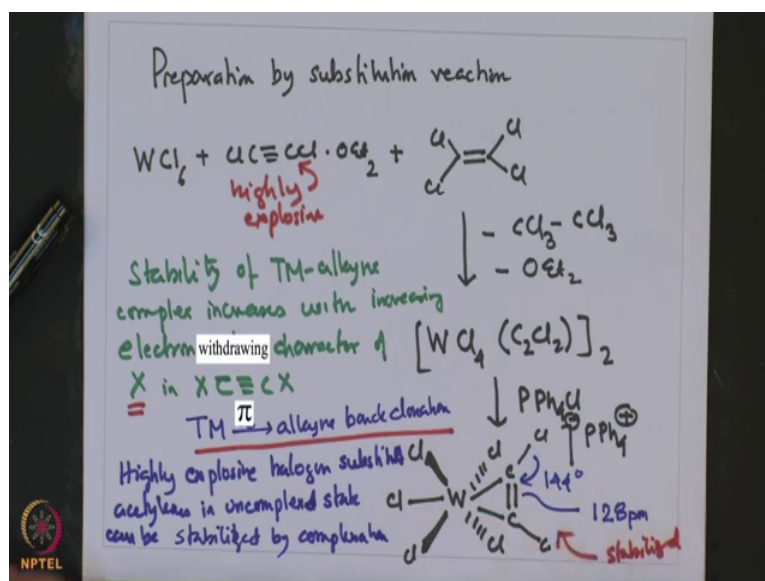 Preparation by substitution reaction
WCl6 + ClC≡CCl·OEt2 +
Cl
Cl
Cl
Cl
highly
explosive
- CCl3-CCl3
- OEt2
Stability of TM-alkyne
complex increases with increasing
electron withdrawing character of
X in XC≡CX
[WCl4 (C2Cl2)]2
PPh4Cl
π
TM → alkyne back donation
Highly explosive halogen substituted
acetylenes in uncomplexed state
can be stabilized by complexation
Cl
Cl
Cl
W
Cl
Cl
C
C
Cl
Cl
144°
128pm
⊖
PPh4 ⊕
stabilized
NPTEL